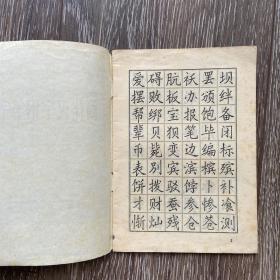 爱碍肮袄罢坝
摆败板办颁绊
帮绑宝报饱备
辈贝狈笔毕闭
币毙变边编标
表别宾滨槟殡
饼拨驳饽卜补
才财蚕参惨
惭灿残仓苍测